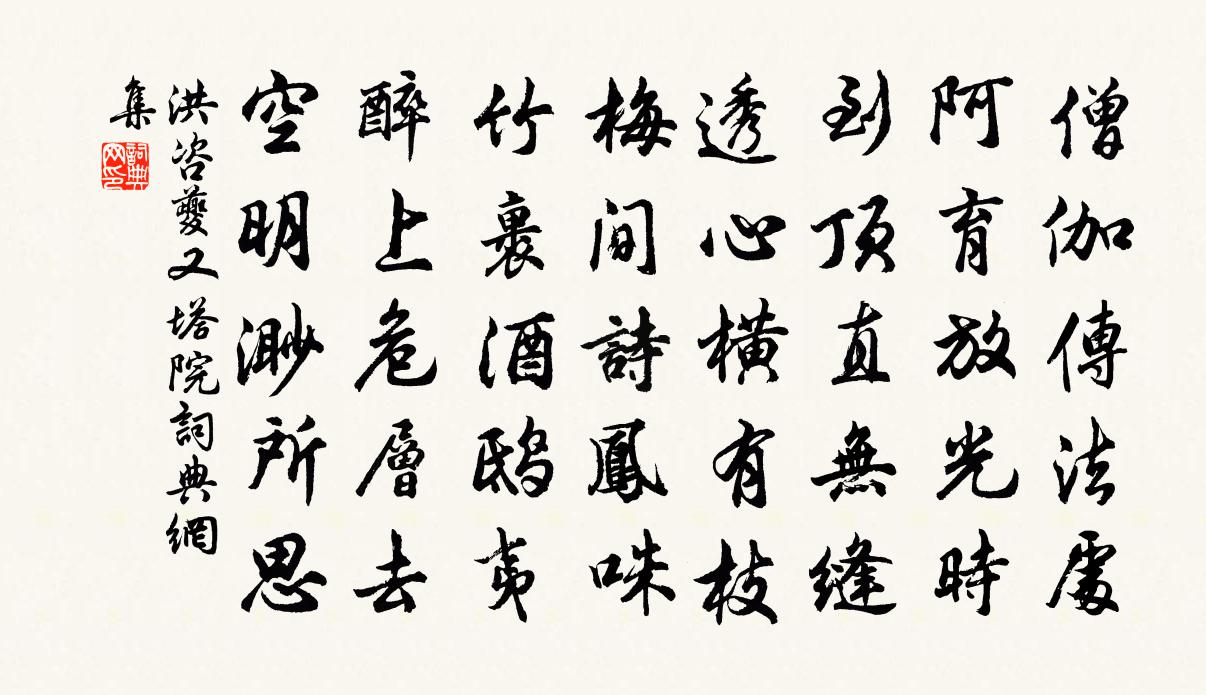 僧伽傳法處
阿育放光時
到頂直無縫
透心橫有枝
梅間詩鳳咮
竹裹酒鴟夷
醉上危層去
空明渺所思
洪咨夔又塔院詞典網
集
詞典網印